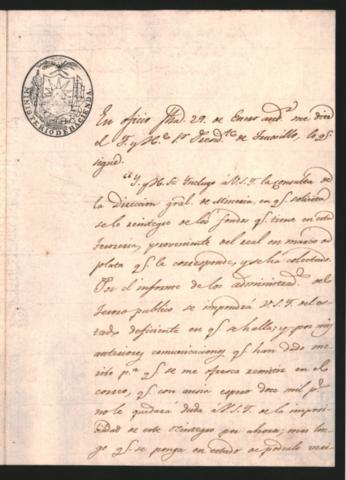 MINISTERIO DE HACIENDA
En oficio fha. 29. de Enero me dice
el Y. y H. Sr. Presid.te de Truxillo, lo q.e
sigue.
"Y. y H. Sr. Incluyo á V.S.Y. la consulta de
la Direccion gral. de Mineria, en q.e solicita
se le reintegre de los fondos q.e tiene en esta
Tesoreria, proveniente del real en marco de
plata q.e le corresponde, y se ha colectado.
Por el informe de los administrad.s del
Tesoro publico se impondrá V.S.Y. del es-
tado deficiente en q.e se halla; y por mis
anteriores comunicaciones q.e han dado me-
rito p.a q.e se me ofresca remitir en el
correo, q.e con ansia espero doce mil p.s
no le quedará duda á V.S.Y. de la impos-
ibilidad de este reintegro por ahora; mas lue-
go q.e se ponga en estado de poderlo veri-